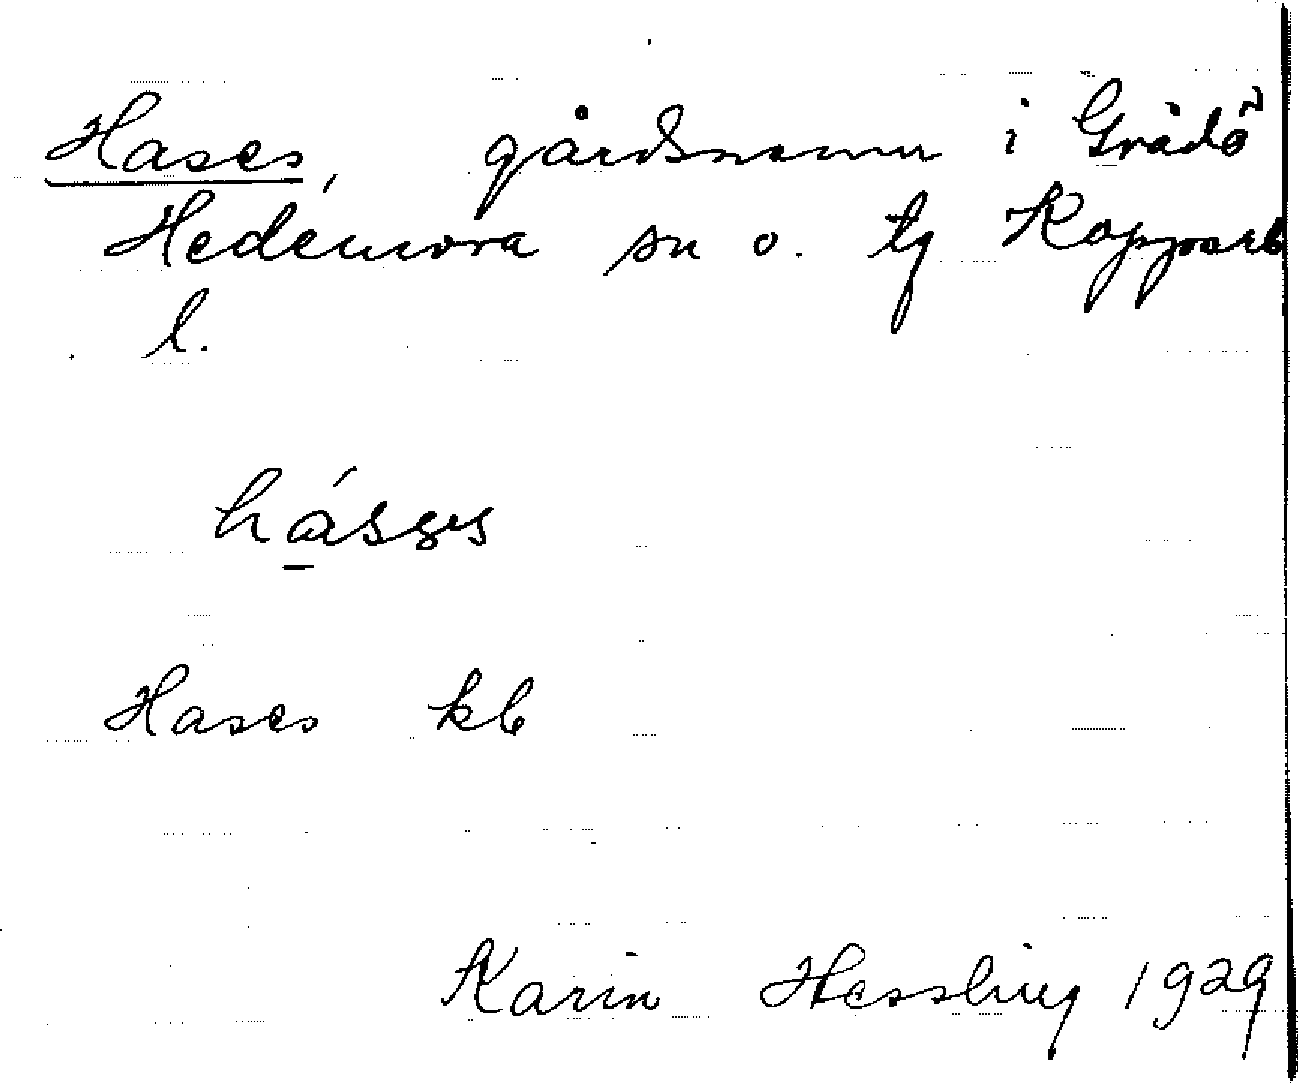 Hases, gårdsnamn i Grådö
Hedemora sn o. tg Kopparb
l.
Hases kb
Karin Hessling 1929